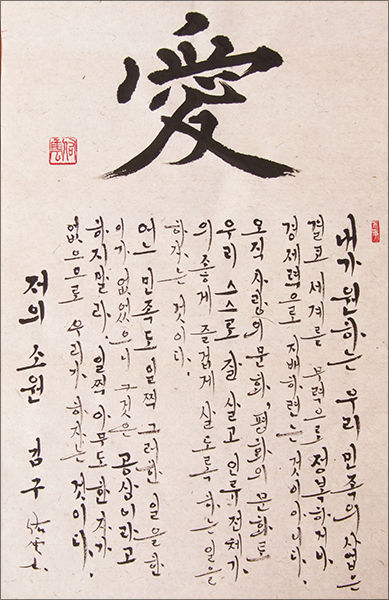 愛
내가 원하는 우리 민족의 사업은
결코 세계를 무력으로 정복하거나
경제력으로 지배하려는 것이 아니다.
오직 사랑의 문화, 평화의 문화로
우리 스스로 잘 살고 인류 전체가
의좋게 즐겁게 살도록 하는 일을
하자는 것이다.
어느 민족도 일찍 그러한 일을 한
이가 없었으니 그것은 공상이라고
하지말라. 일찍 아무도 한 자가
없으므로 우리가 하자는 것이다.
저의 소원 김구